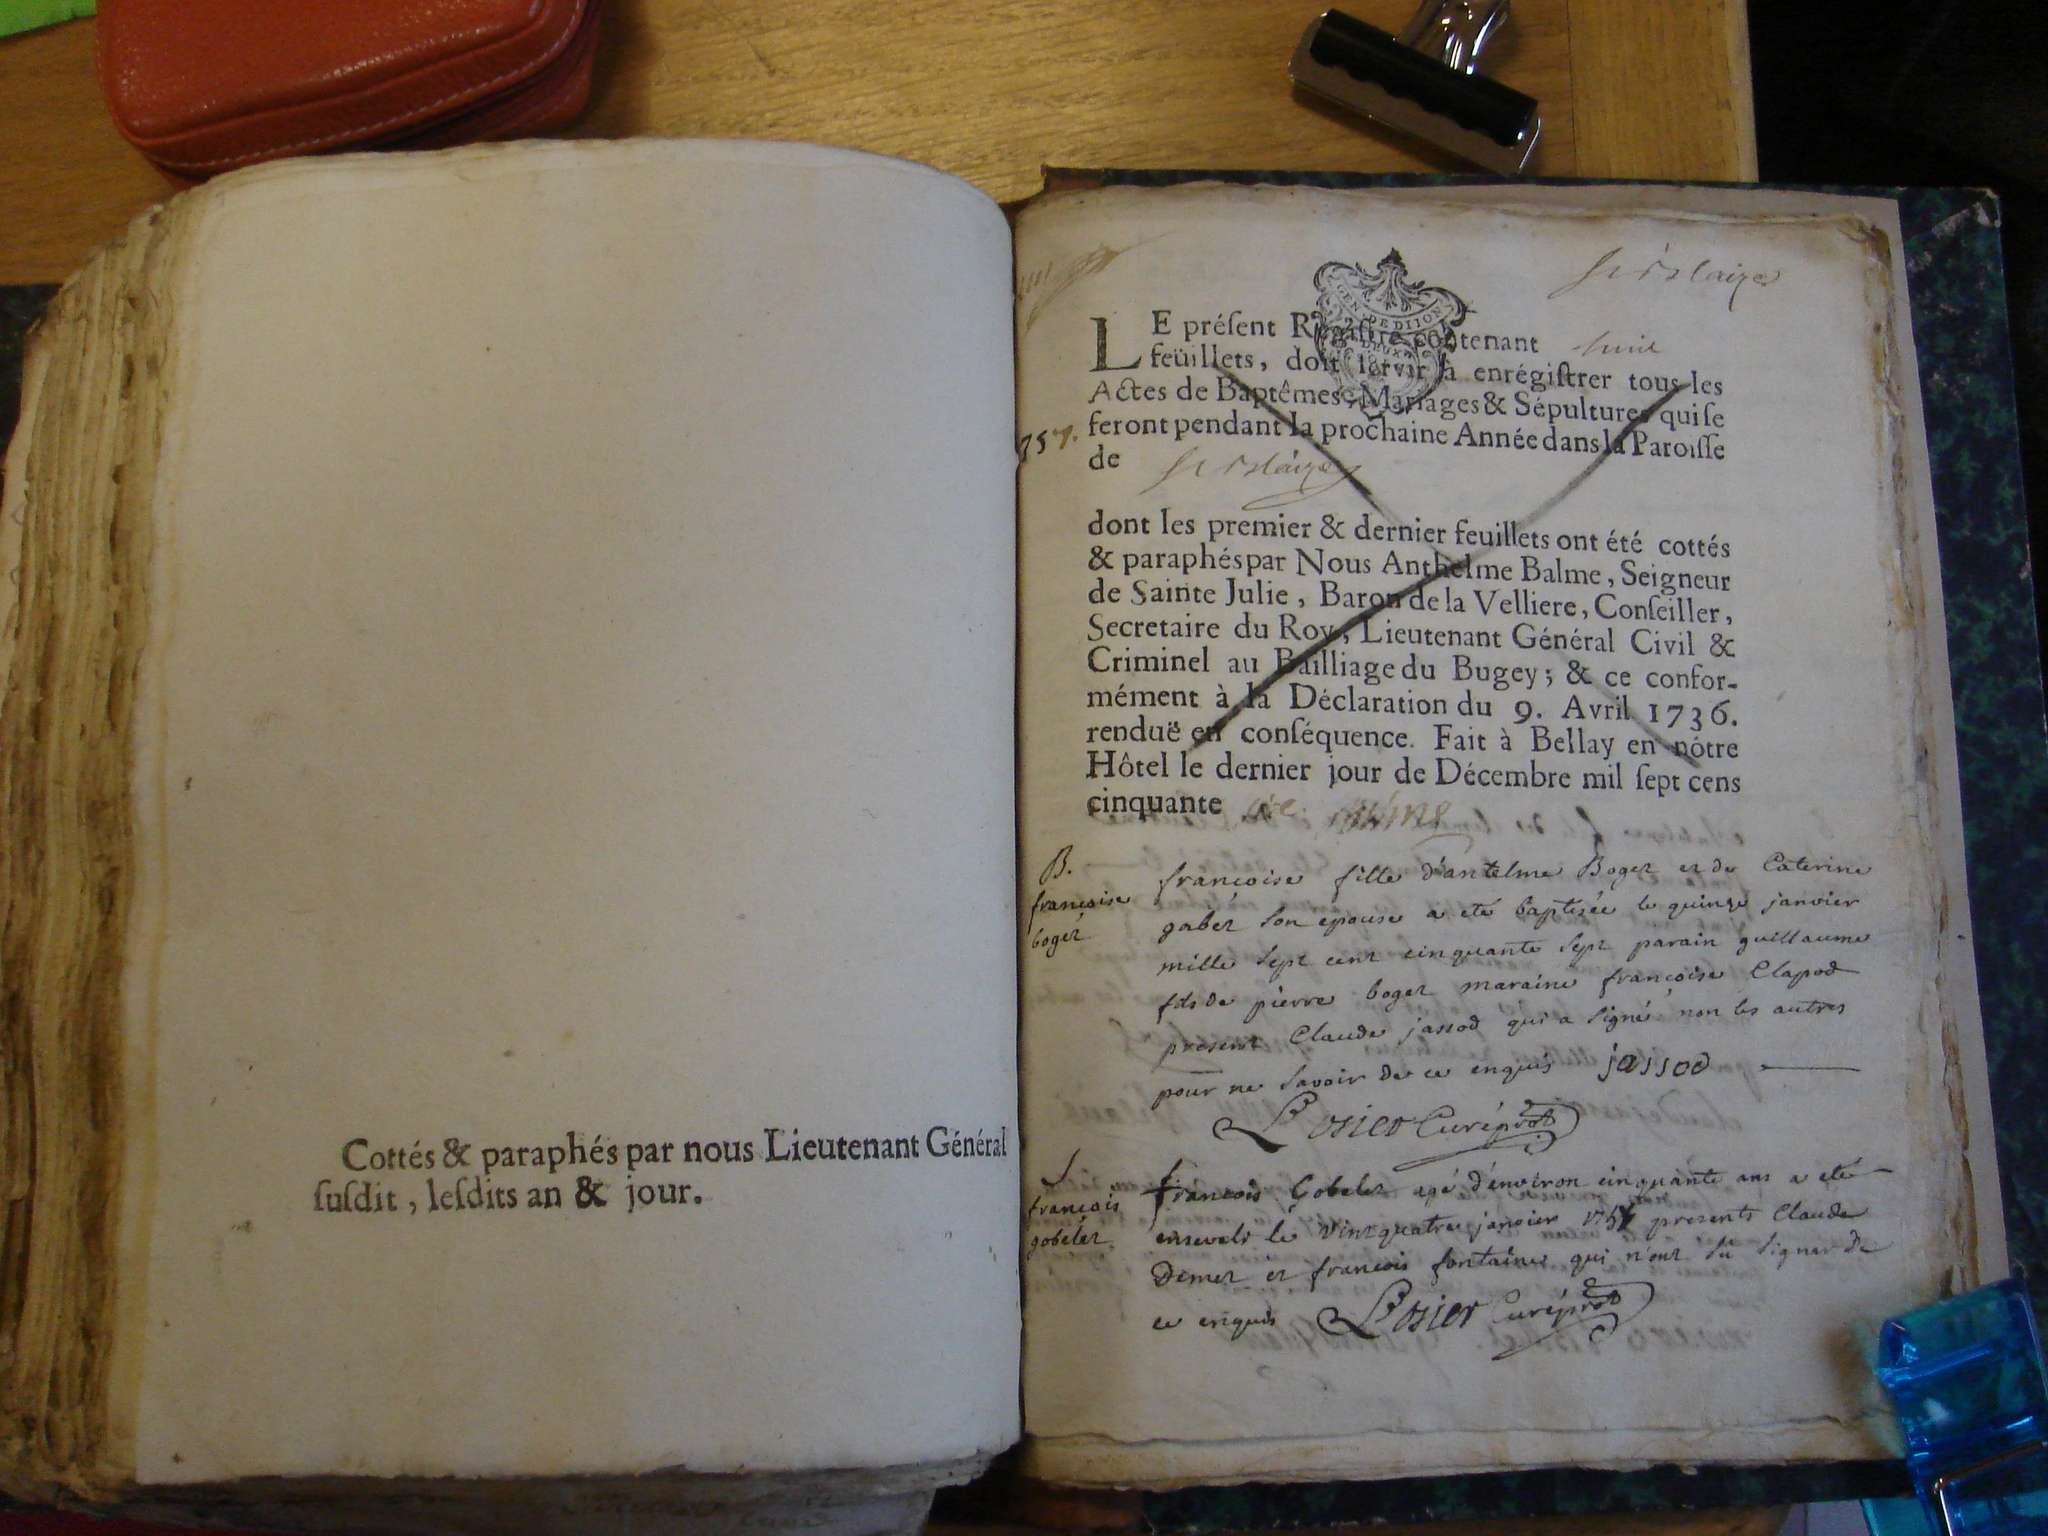 Cottés & paraphés par nous Lieutenant Général
ſuſdit, leſdits an & jour.
GEN. DE DIJON
LE préſent Régiſtre contenant huit
feüillets, doit ſervir à enrégiſtrer tous les
Actes de Baptêmes, Mariages & Sépultures qui ſe
feront pendant la prochaine Année dans la Paroiſſe
de
dont les premier & dernier feuillets ont été cottés
& paraphés par Nous Anthelme Balme, Seigneur
de Sainte Julie, Baron de la Velliere, Conſeiller,
Secretaire du Roy, Lieutenant Général Civil &
Criminel au Bailliage du Bugey; & ce confor-
mément à la Déclaration du 9. Avril 1736.
renduë en conſéquence. Fait à Bellay en nôtre
Hôtel le dernier jour de Décembre mil ſept cens
cinquante
B.
françoise
boget
françoise fille d'antelme Boget et de Caterine
gabet son epouse a eté baptisée le quinze janvier
mille sept cent cinquante sept parain guillaume
fils de pierre boget maraine françoise Clapod
present Claude jassod qui a signé non les autres
pour ne savoir de ce enquis jassod
Losier Curé
S
françois
gobelet
francois Gobelet agé d'environ cinquante ans a eté
enseveli le vint quatre janvier 1757 presents Claude
Demet et francois fontaine qui n'ont su signer de
ce enquis Losier Curé